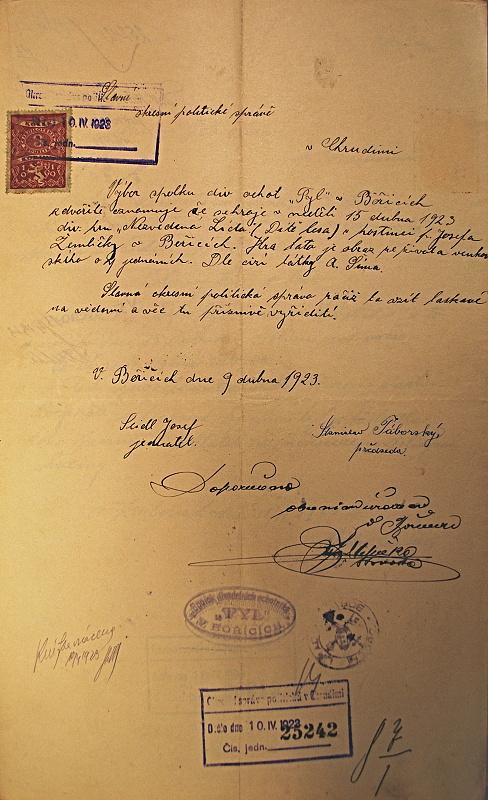 Slavné
okresní politické správě
v Chrudimi
10. IV. 1923
Čís. jedn.
Výbor spolku div. ochot. „Tyl" v Bořicích
zdvořile oznamuje že sehraje v neděli 15 dubna 1923
div. hru „Dítě lesa" v hostinci p. Josefa
Žemličky v Bořicích. Hra tato je obraz ze života venkov-
ského o jednáních. Dle cizí látky A. Šíma.
Slavná okresní politická správa račiž to vzíti laskavě
na vědomí a věc tu příznivě vyříditi.
V Bořicích dne 9 dubna 1923.
Seidl Josef
jednatel.
Stanislav Táborský
předseda.
Doporučeno
obecním úřadem
v
starosta
Spolek divadelních ochotníků
„TYL"
V BOŘICÍCH
Okresní správa politická v Chrudimi
Došlo dne 10. IV. 1923
25242
Čís. jedn.